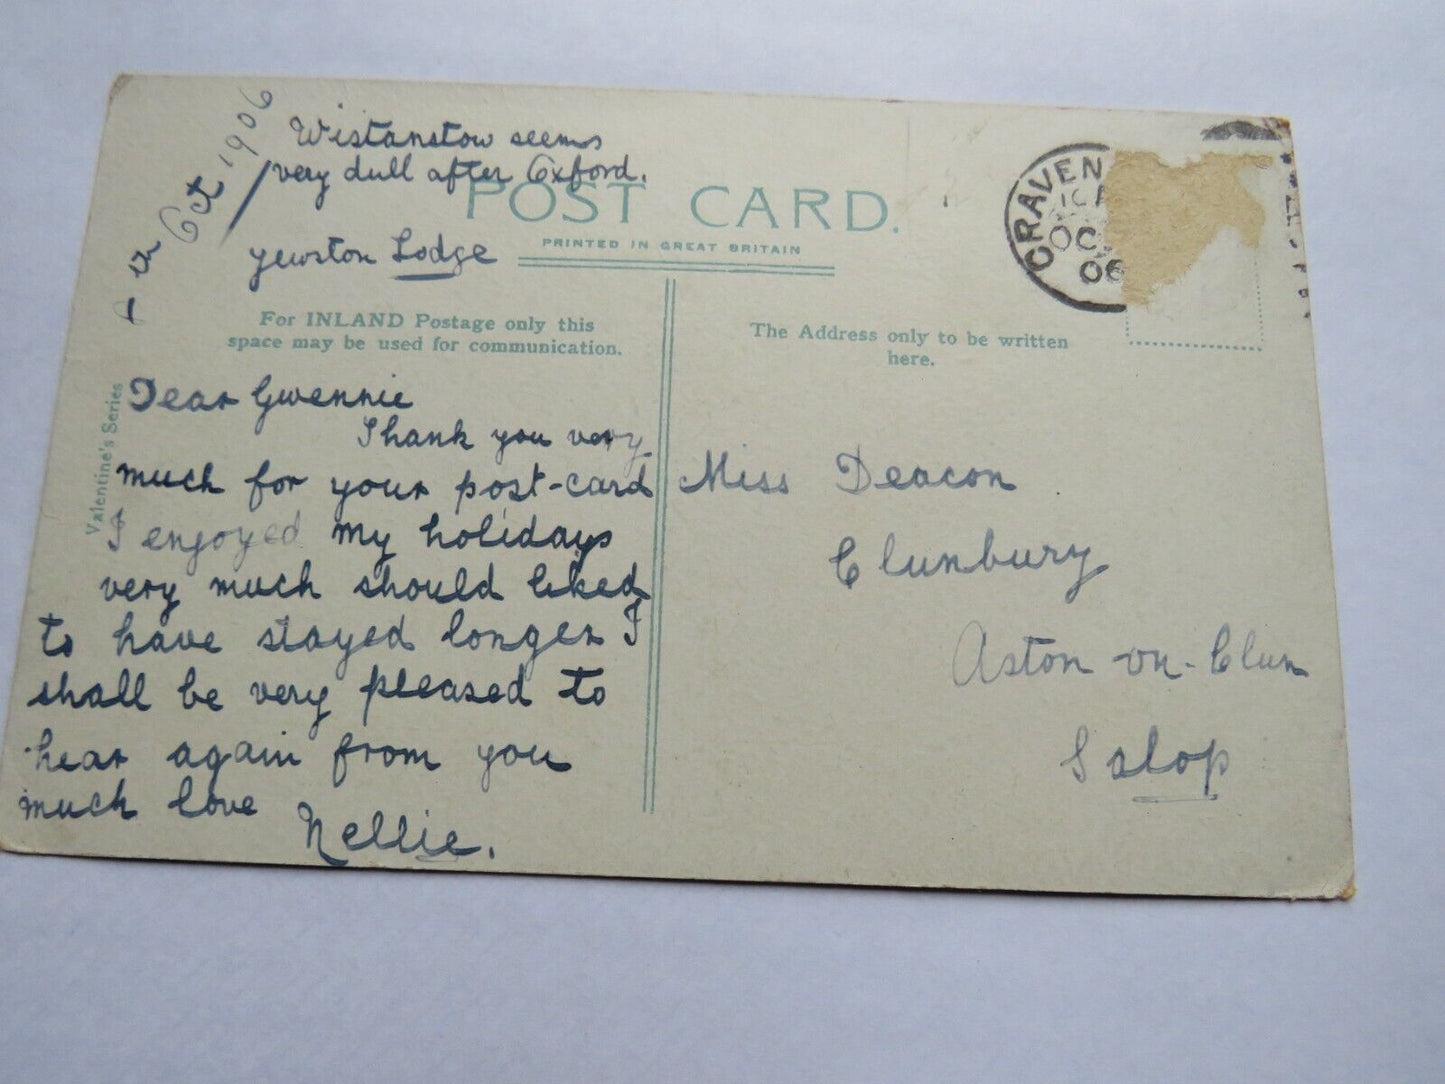 Oct 1906
Wistanstow seems
very dull after Oxford.
POST CARD.
PRINTED IN GREAT BRITAIN
Lodge
For INLAND Postage only this
space may be used for communication.
The Address only to be written
here.
Valentine's Series
CRAVEN
OC
06
Dear Gwennie
Thank you very
much for your post-card
I enjoyed my holidays
very much should liked
to have stayed longer I
shall be very pleased to
hear again from you
much love
Nellie.
Miss Deacon
Clunbury
Aston-on-Clun
Salop